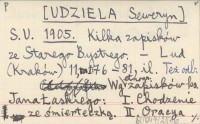 [UDZIELA Seweryn]
S.U. 1905. Kilka zapisków
ze Starego Bystrego. — Lud
(Kraków) 11: 76 - 81, il. Też odb.
Wg zapisków
Jana Łaskiego: I. Chodzenie
ze śmierteczką. II. Oracya